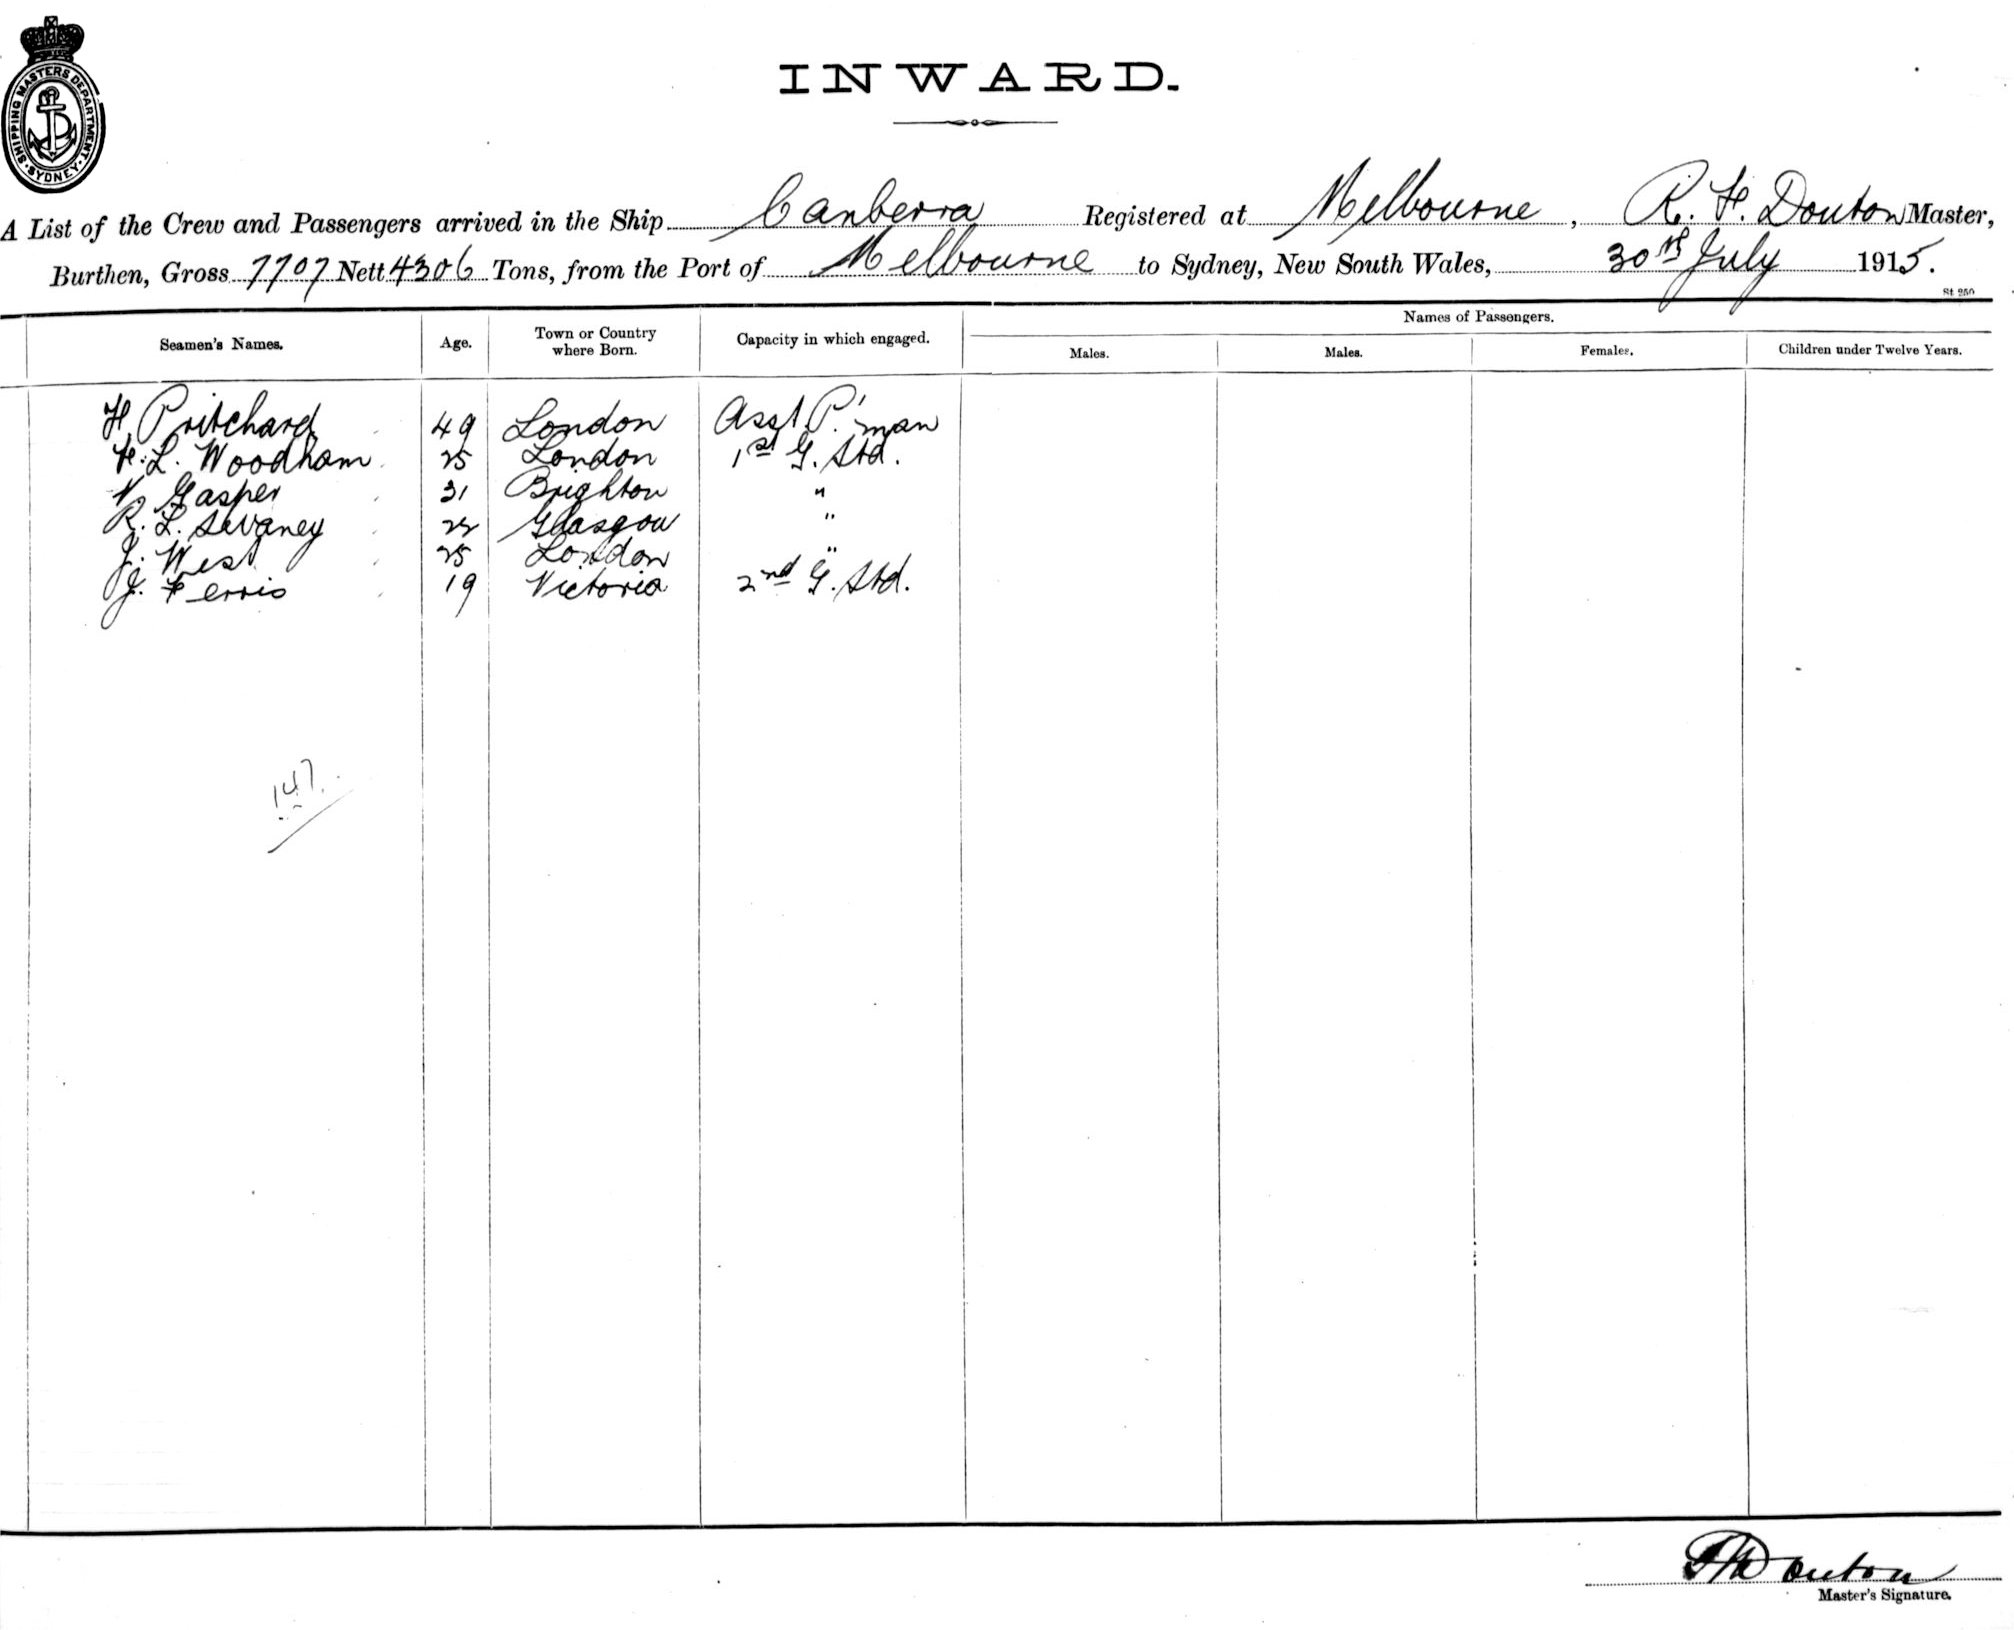 SHIPPING MASTERS DEPARTMENT · SYDNEY ·
INWARD.
A List of the Crew and Passengers arrived in the Ship Canberra Registered at Melbourne, R. H. Douton Master,
Burthen, Gross 7707 Nett 4306 Tons, from the Port of Melbourne to Sydney, New South Wales, 30th July 1915.
St 250
Names of Passengers.
Seamen's Names. Age. Town or Country where Born. Capacity in which engaged. Males. Males. Females. Children under Twelve Years.
H Pritchard 49 London Asst P'man
F. L. Woodham 25 London 1st G. Std.
V Gasper 31 Brighton "
R. L. Devaney 22 Glasgow "
J. West 25 London "
J. Ferris 19 Victoria 2nd G. Std.
147.
Douton
Master's Signature.